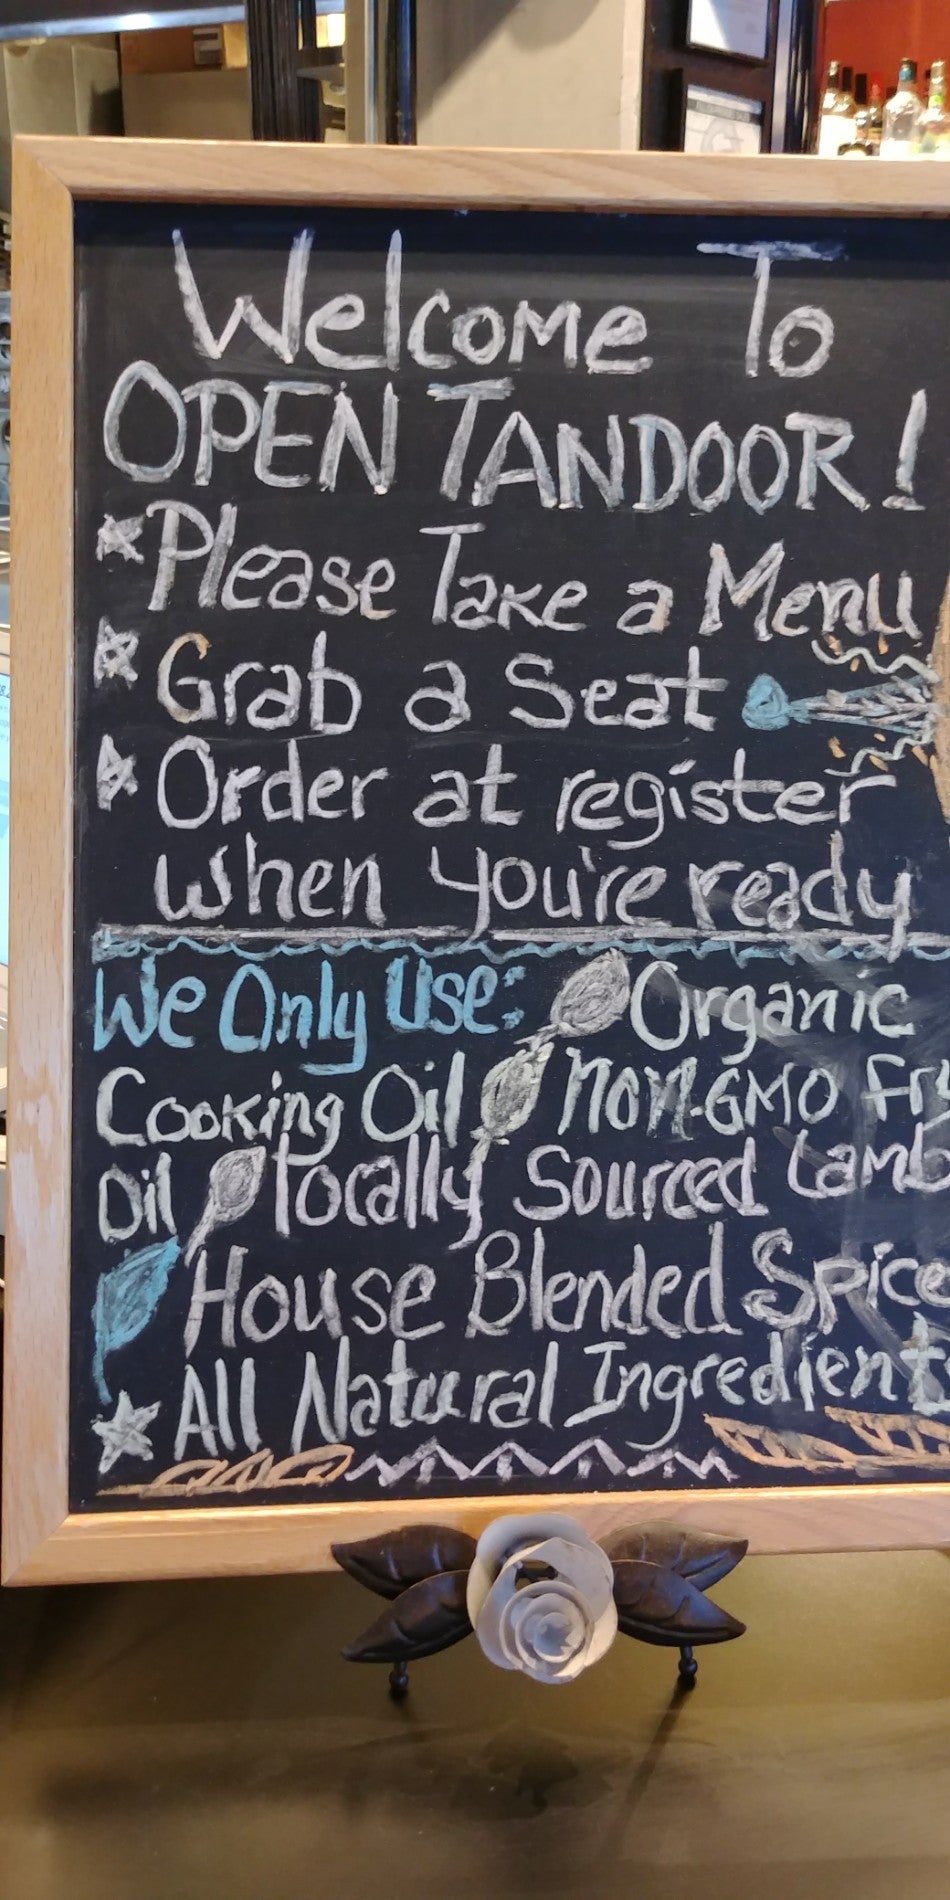 Welcome To
OPEN TANDOOR!
Please Take a Menu
Grab a Seat
Order at register
when you're ready
We Only Use: Organic
Cooking Oil Non-GMO Fry
Oil locally Sourced Lamb
House Blended Spice
All Natural Ingredients